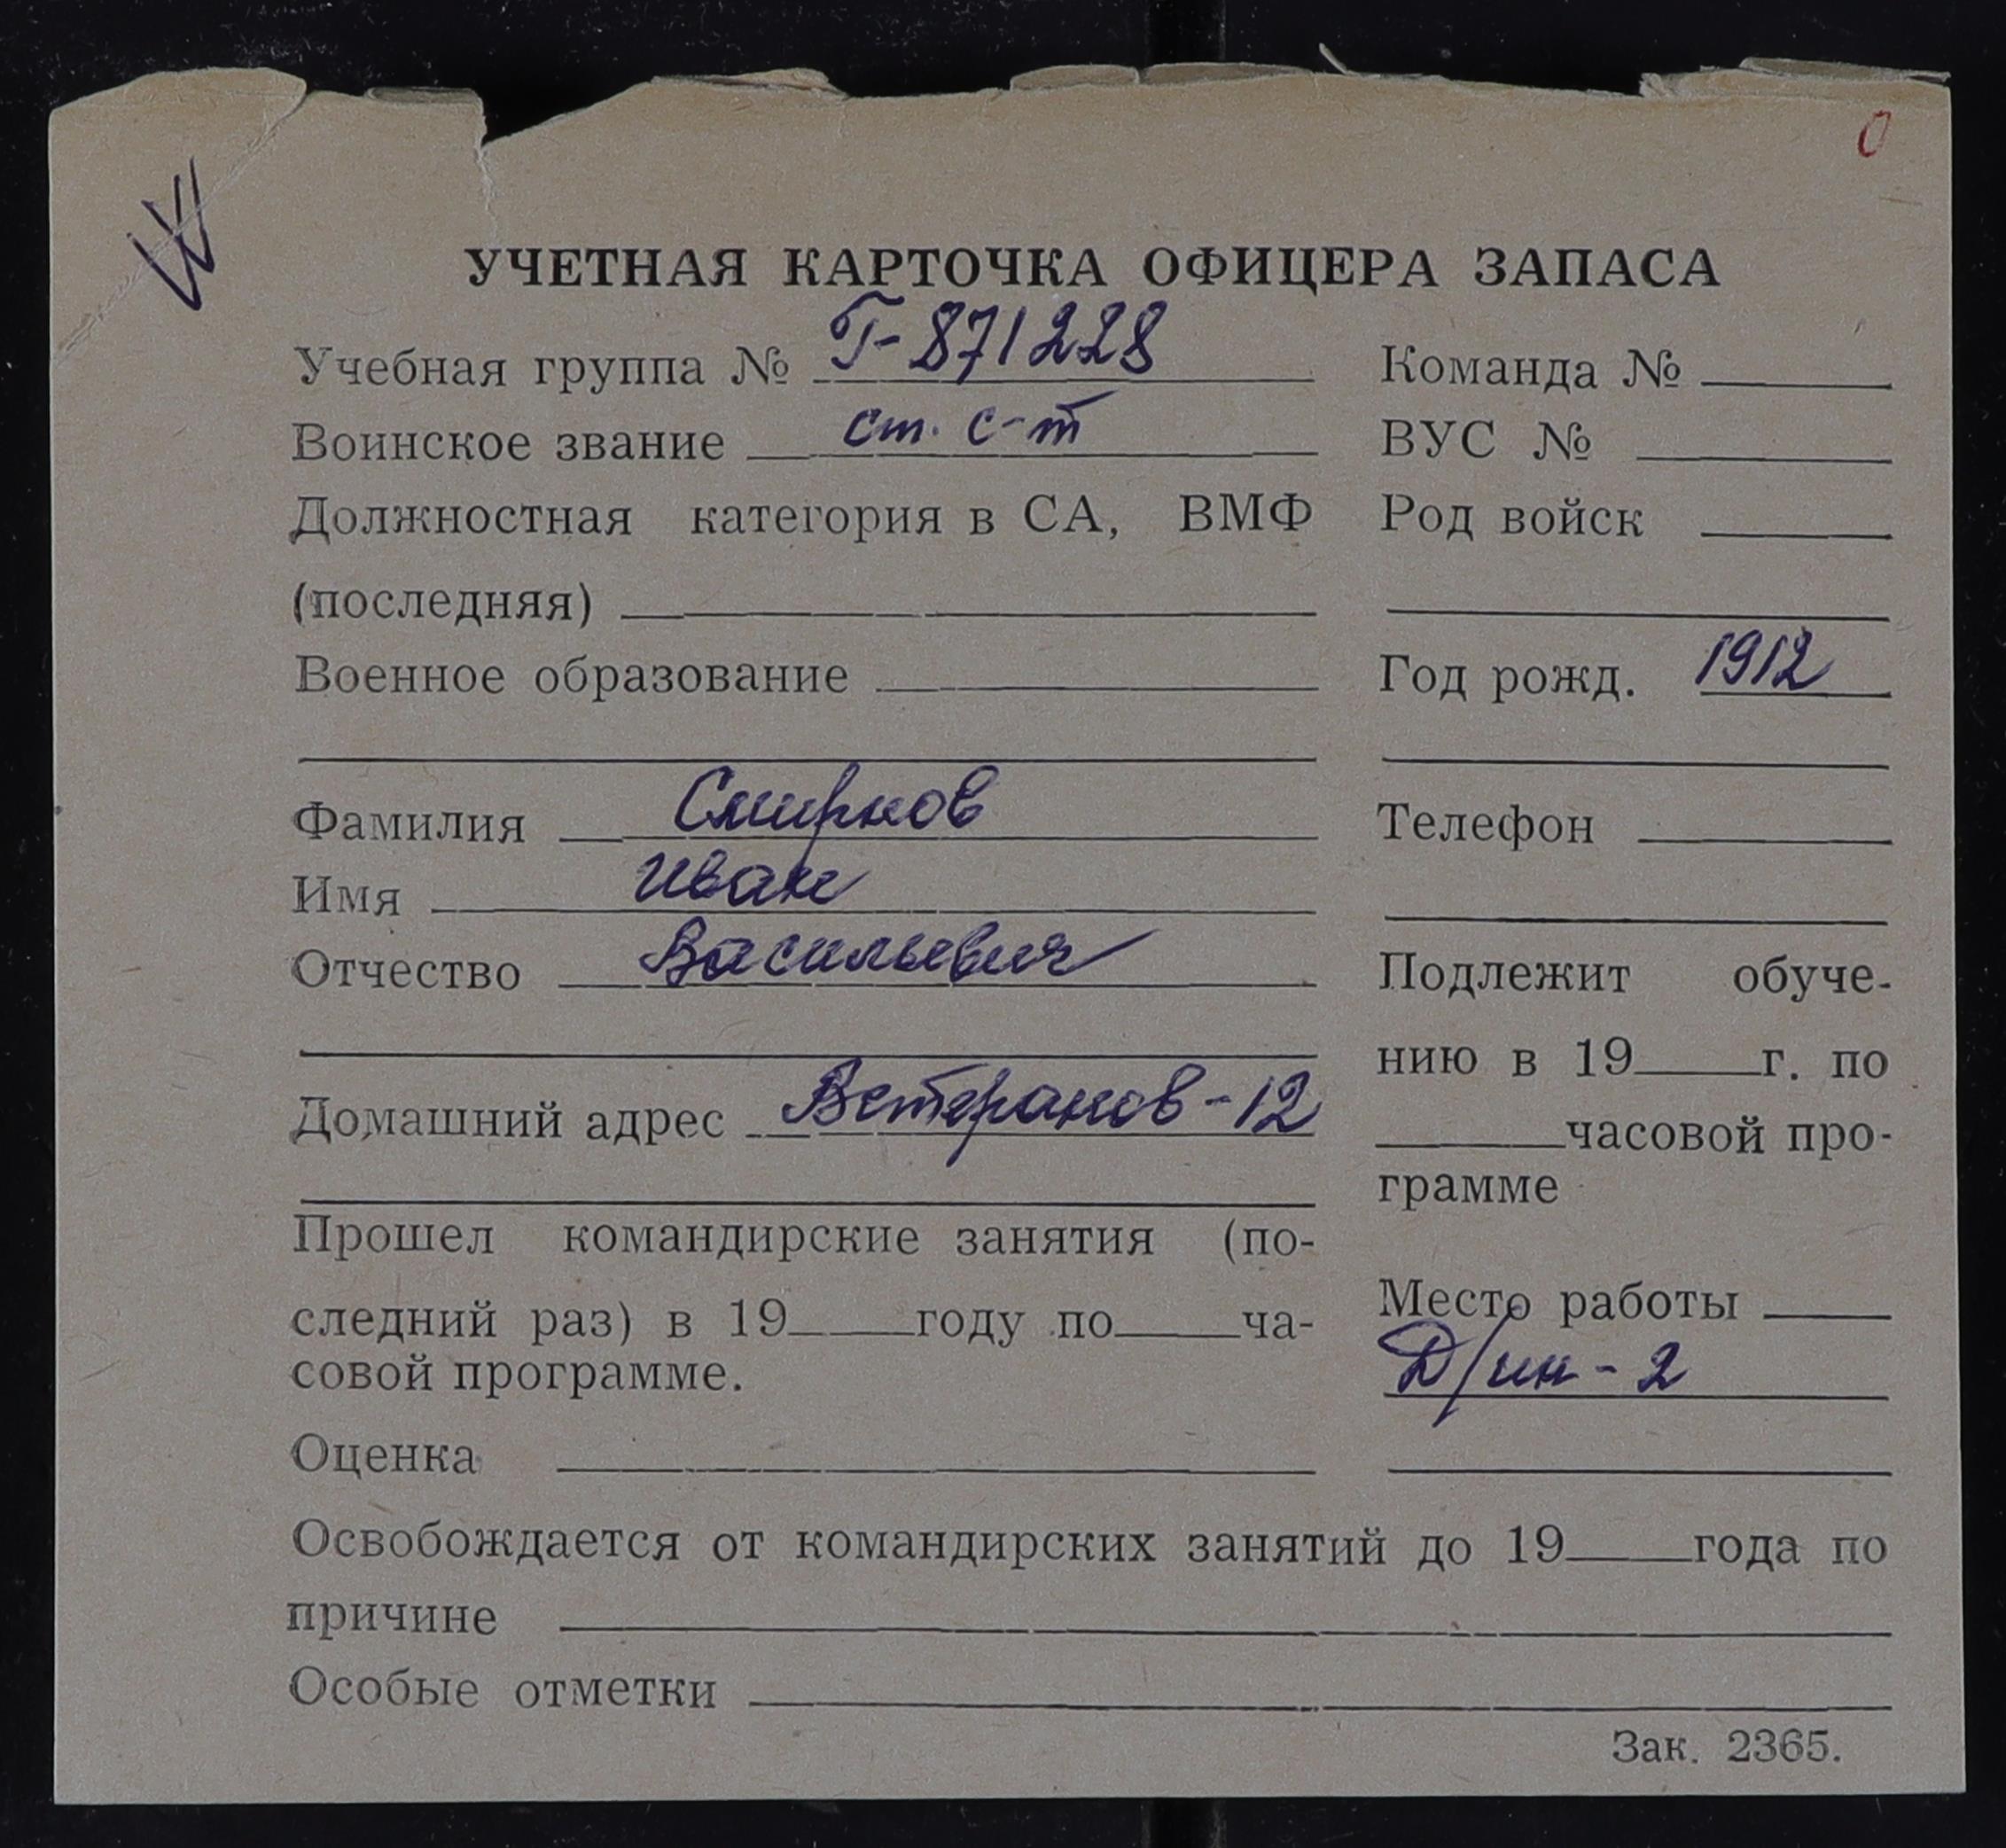 0
УЧЕТНАЯ КАРТОЧКА ОФИЦЕРА ЗАПАСА
Учебная группа № Г-871228
Воинское звание ст. с-т
Должностная категория в СА, ВМФ
(последняя)
Военное образование
Фамилия Смирнов
Имя Иван
Отчество Васильевич
Домашний адрес Ветеранов-12
Прошел командирские занятия (по-
следний раз) в 19 году по ча-
совой программе.
Оценка
Команда №
ВУС №
Род войск
Год рожд. 1912
Телефон
Подлежит обуче-
нию в 19 г. по
часовой про-
грамме
Место работы
Д/ин-2
Освобождается от командирских занятий до 19 года по
причине
Особые отметки
Зак. 2365.